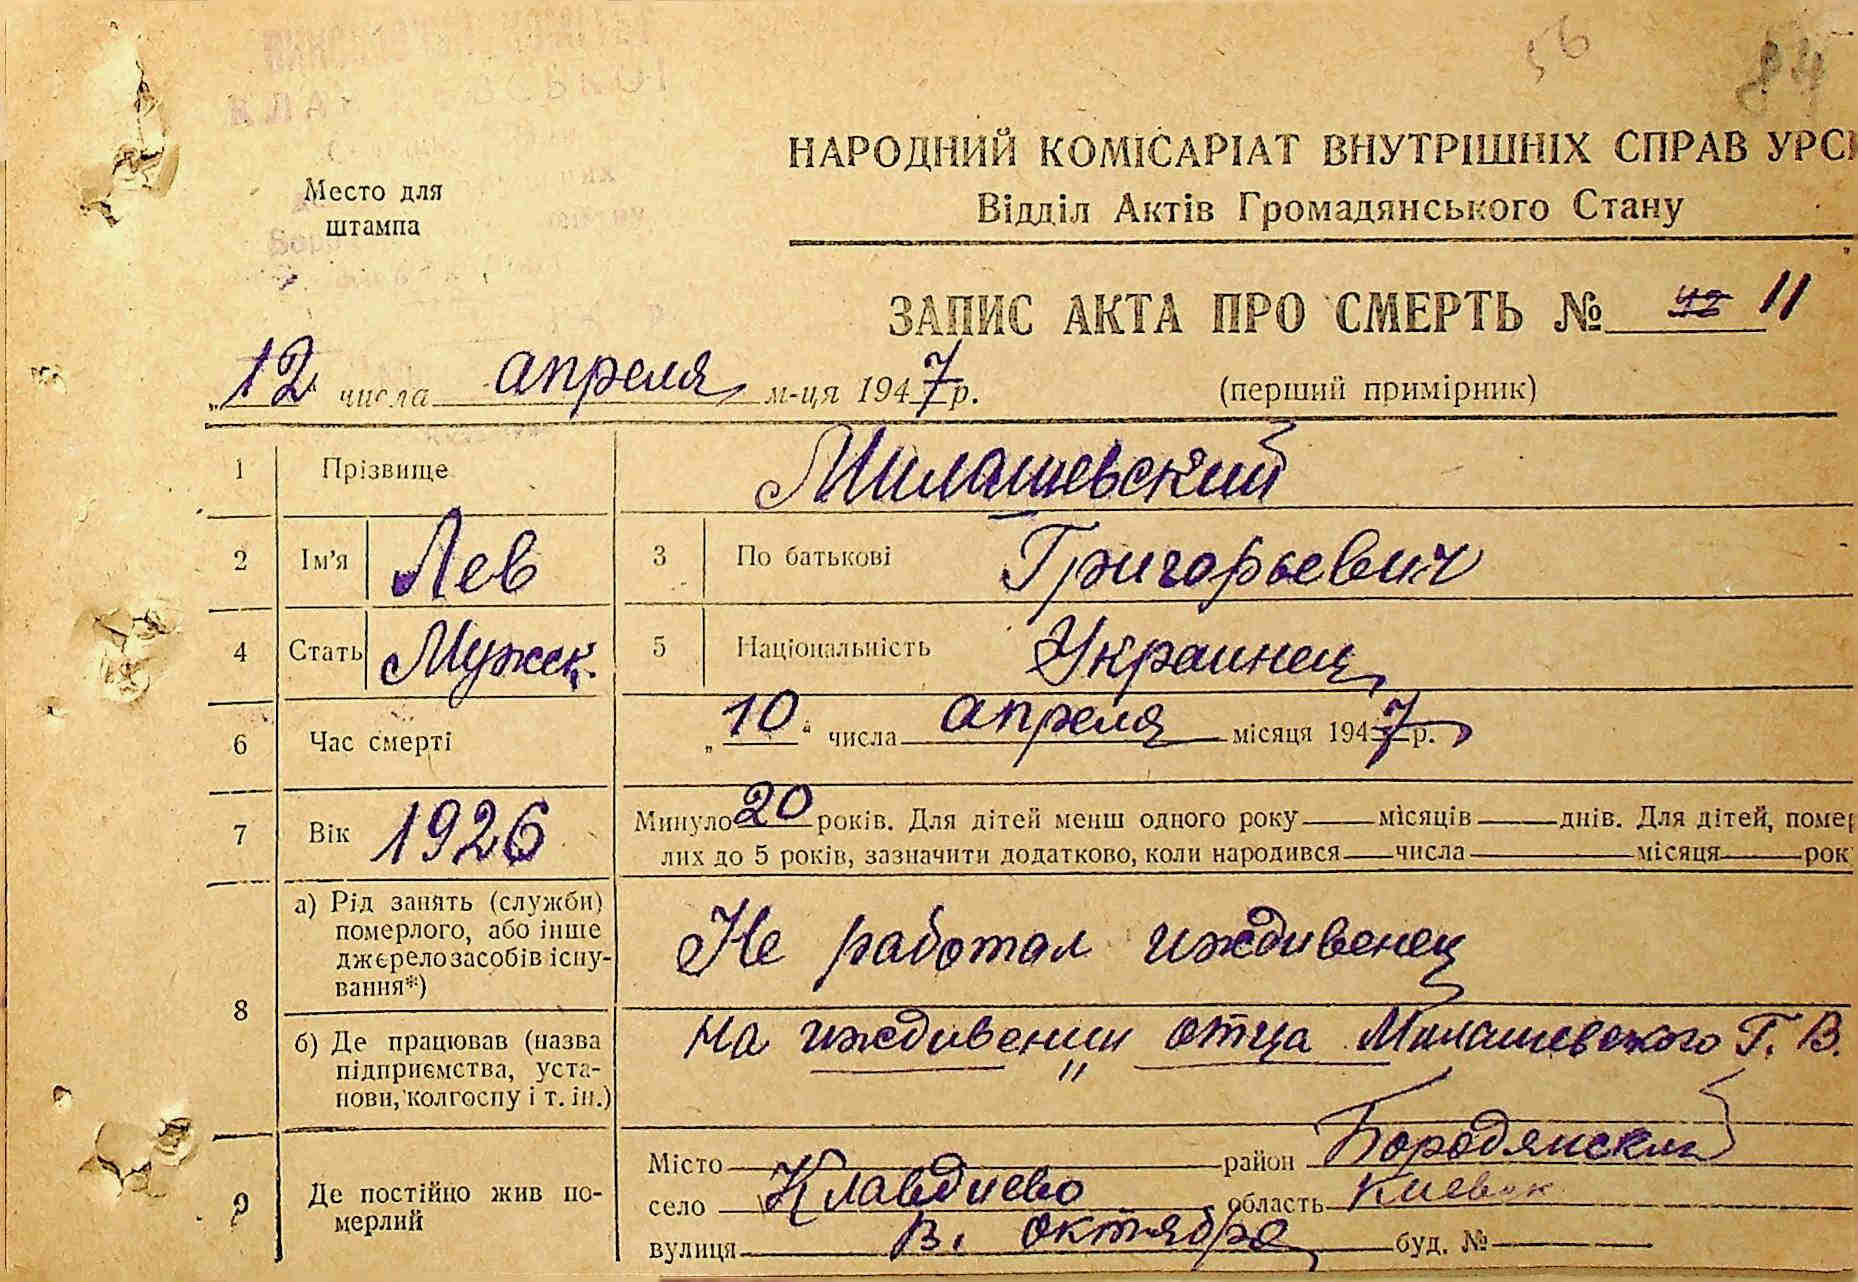 56
84
НАРОДНИЙ КОМІСАРІАТ ВНУТРІШНІХ СПРАВ УРСР
Відділ Актів Громадянського Стану
Место для
штампа
ЗАПИС АКТА ПРО СМЕРТЬ № 42 11
„12" числа апреля м-ця 1947 р. (перший примірник)
1 Прізвище Милашевский
2 Ім'я Лев 3 По батькові Григорьевич
4 Стать Мужск. 5 Національність Украинец
6 Час смерті „10" числа апреля місяця 1947 р.
7 Вік 1926 Минуло 20 років. Для дітей менш одного року — місяців — днів. Для дітей, помер
лих до 5 років, зазначити додатково, коли народився — числа — місяця — рок
8 а) Рід занять (служби)
померлого, або інше
джерело засобів існу-
вання*)
Не работал иждивенец
б) Де працював (назва
підприємства, уста-
нови, колгоспу і т. ін.)
на иждивении отца Милашевского Г. В.
"
9 Де постійно жив по-
мерлий
Місто — район Бородянский
село Клавдиево область Киевск
вулиця В. Октября буд. № —